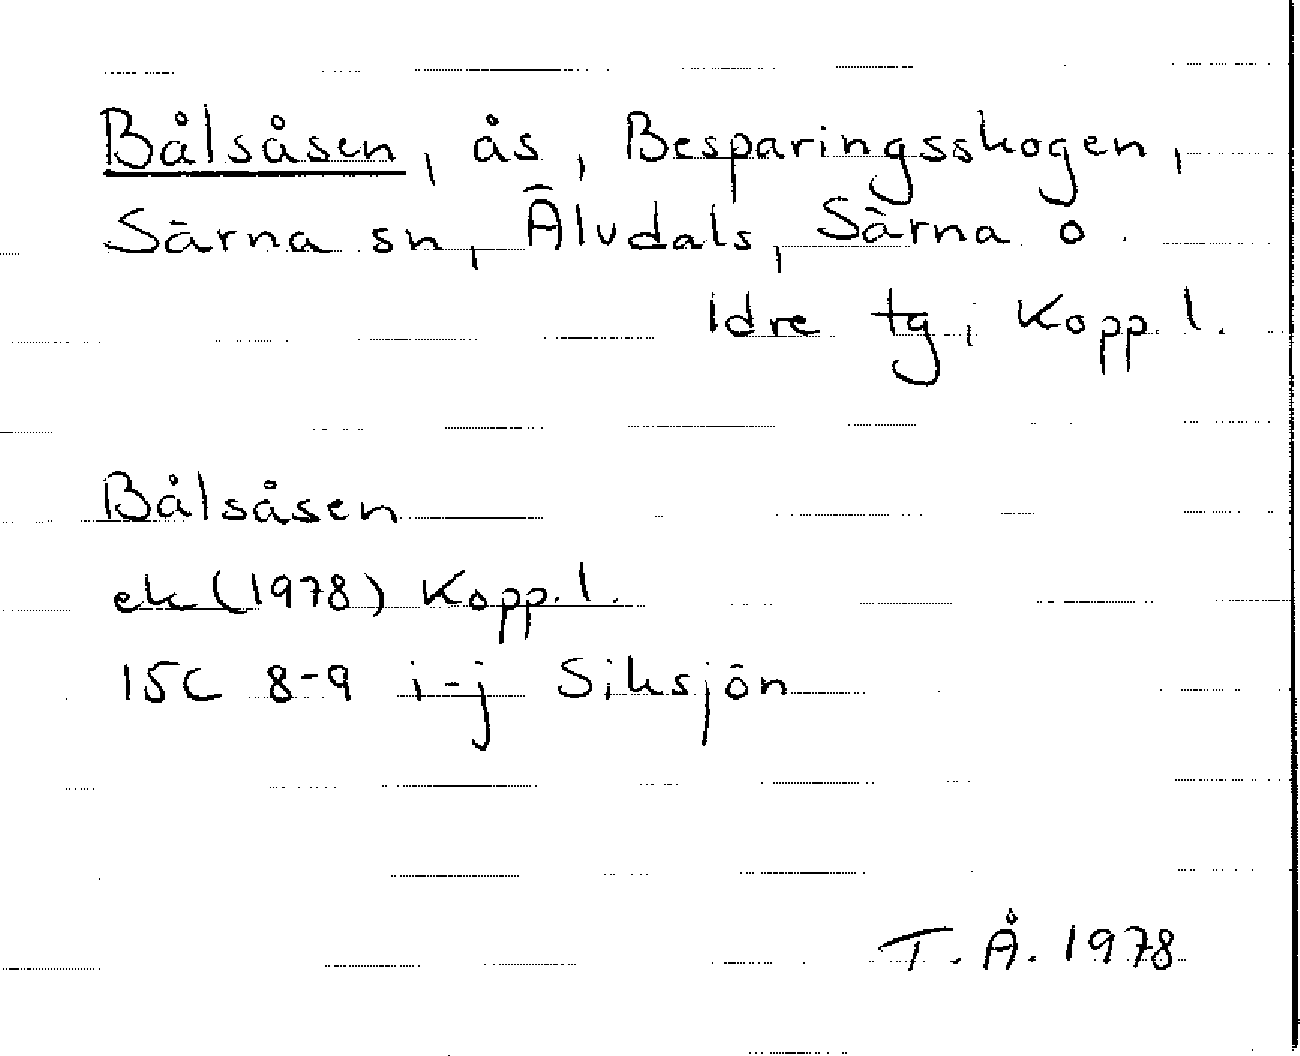 Bålsåsen, ås, Besparingsskogen,
Särna sn, Älvdals, Särna o.
Idre tg, Kopp. l.
Bålsåsen
ek (1978) Kopp. l.
15C 8-9 i-j Siksjön
T. Å. 1978